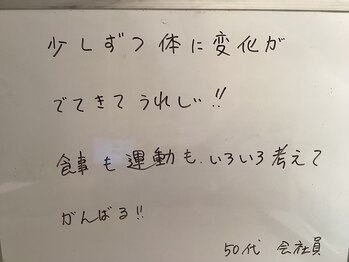 少しずつ体に変化が
でてきてうれしい!!
食事も運動も、いろいろ考えて
がんばる!!
50代 会社員